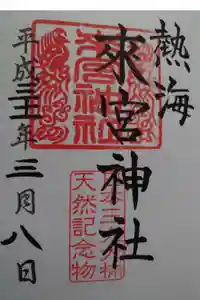 熱海
來宮神社
平成三十一年三月八日
來宮神社
天然記念物